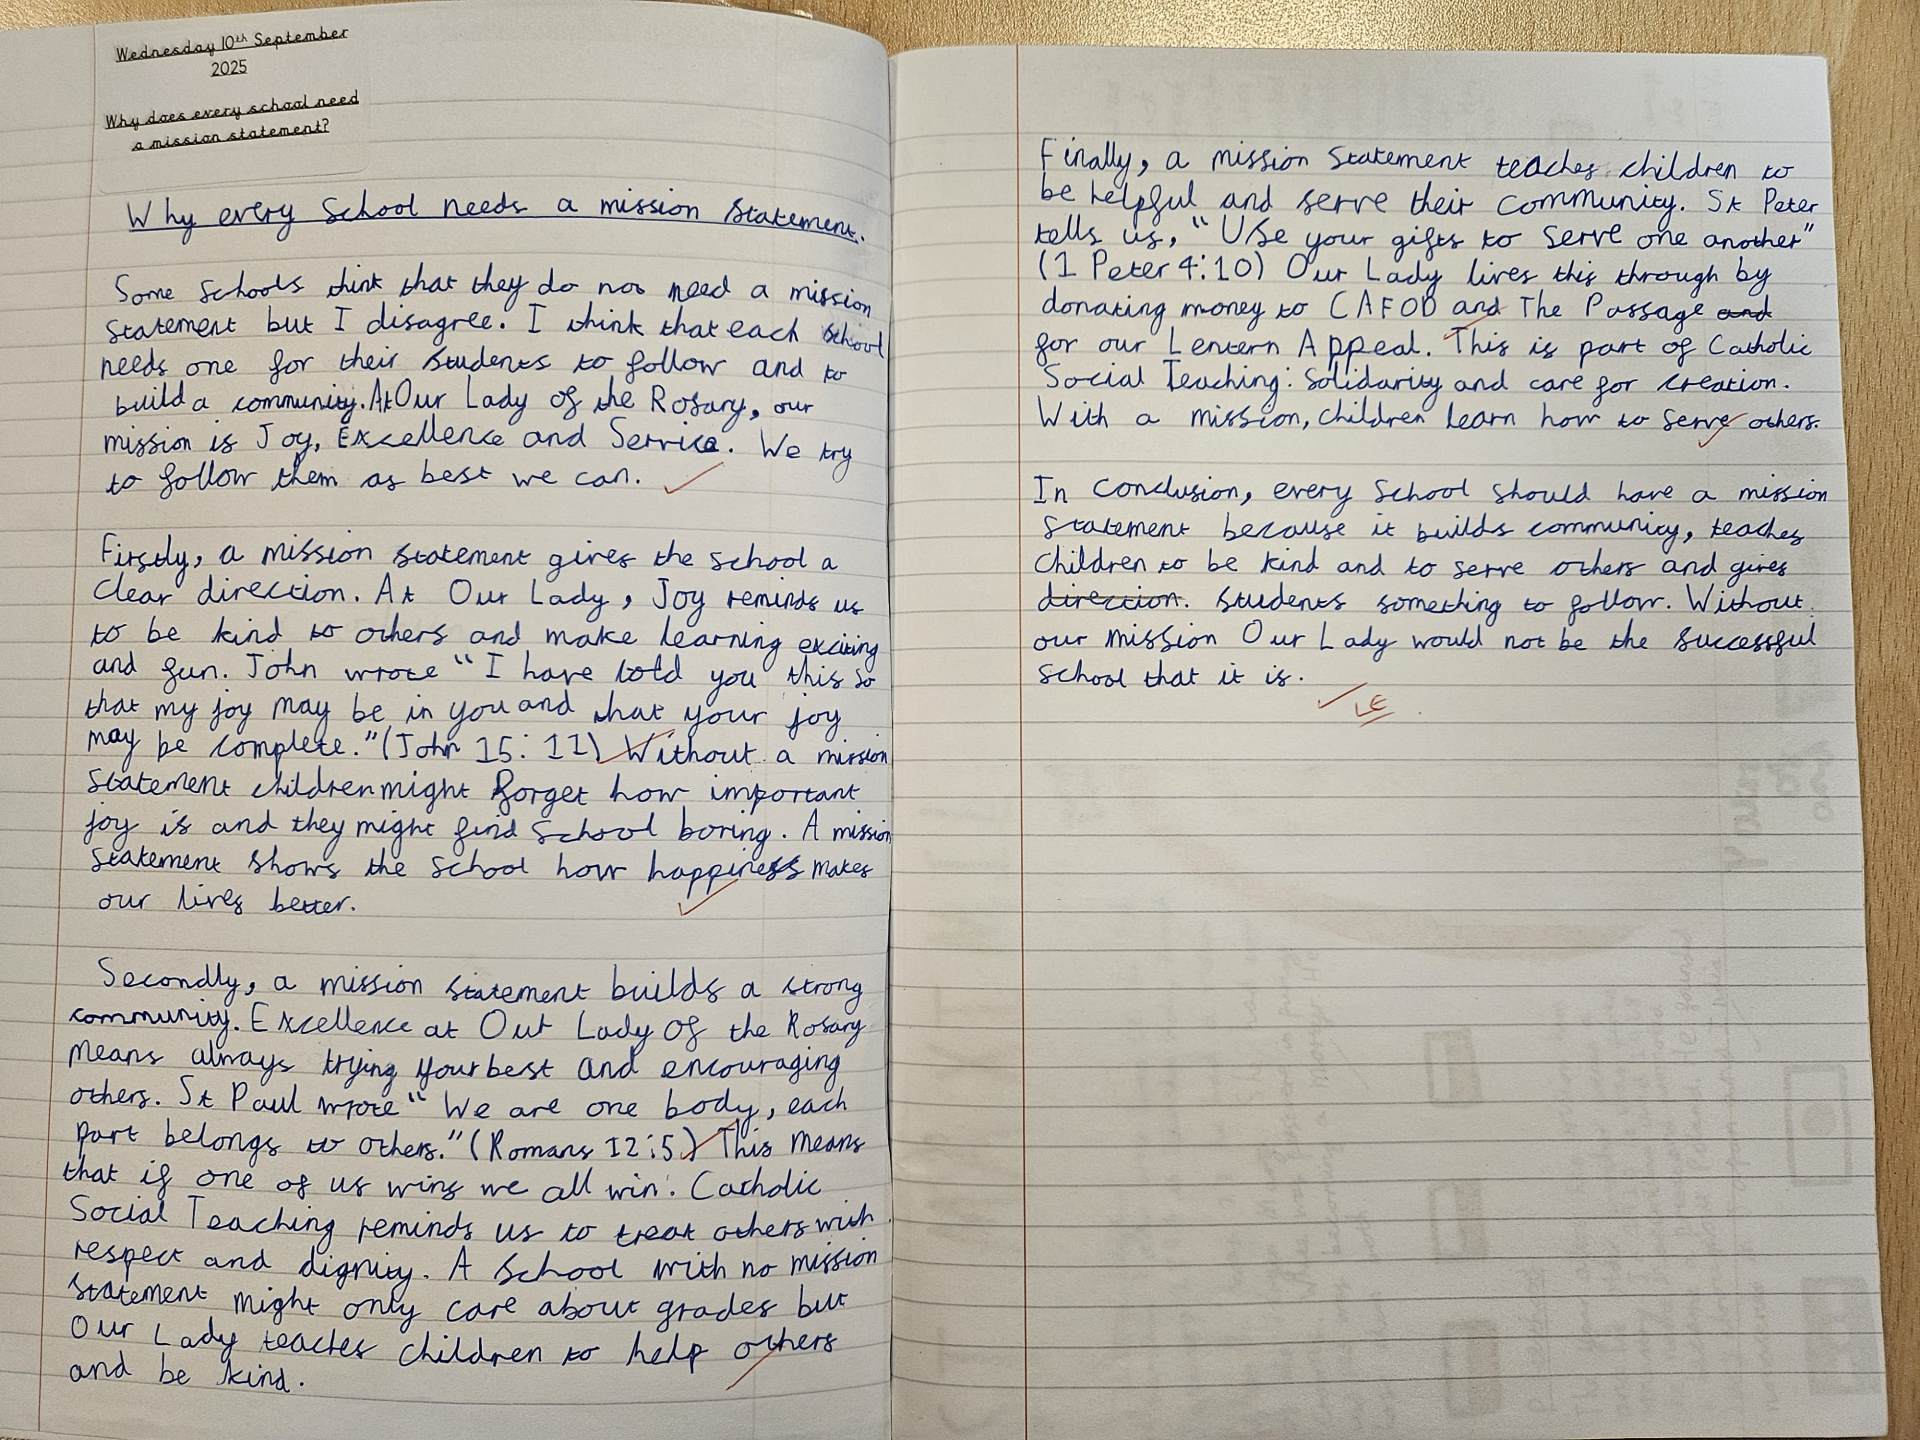 Wednesday 10th September
2025
Why does every school need
a mission statement?
Why every School needs a mission statement.
Some schools think that they do not need a mission
statement but I disagree. I think that each school
needs one for their students to follow and to
build a community. At Our Lady of the Rosary, our
mission is Joy, Excellence and Service. We try
to follow them as best we can.
Firstly, a mission statement gives the school a
clear direction. At Our Lady, Joy reminds us
to be kind to others and make learning exciting
and fun. John wrote "I have told you this so
that my joy may be in you and that your joy
may be complete." (John 15:11) Without a mission
statement children might forget how important
joy is and they might find school boring. A mission
statement shows the school how happiness makes
our lives better.
Secondly, a mission statement builds a strong
community. Excellence at Out Lady Of the Rosary
means always trying your best and encouraging
others. St Paul wrote "We are one body, each
part belongs to others." (Romans 12:5) This means
that if one of us wins we all win. Catholic
Social Teaching reminds us to treat others with
respect and dignity. A school with no mission
statement might only care about grades but
Our Lady teaches children to help others
and be kind.
Finally, a mission statement teaches children to
be helpful and serve their community. St Peter
tells us, "Use your gifts to serve one another"
(1 Peter 4:10) Our Lady lives this through by
donating money to CAFOD and The Passage and
for our Lentern Appeal. This is part of Catholic
Social Teaching: Solidarity and care for creation.
With a mission, children learn how to serve others.
In conclusion, every school should have a mission
statement because it builds community, teaches
children to be kind and to serve others and gives
direction. students something to follow. Without
our mission Our Lady would not be the successful
school that it is.